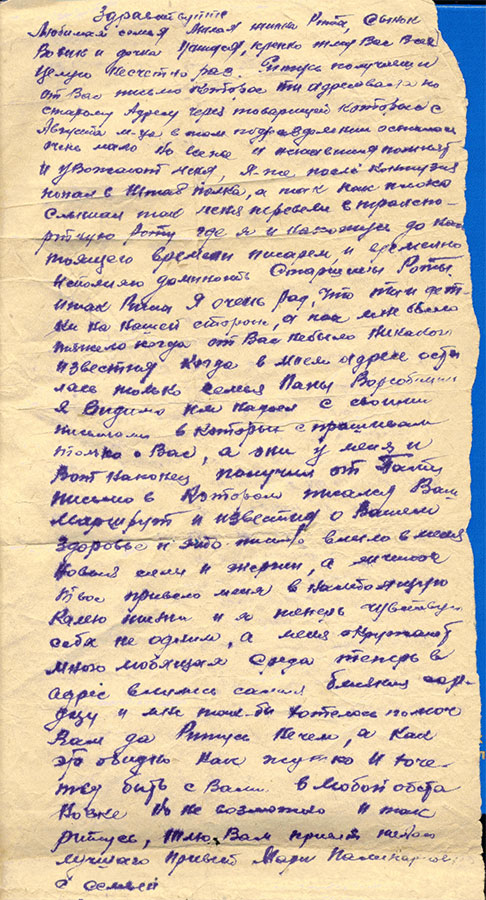 Здравствуйте
Любимая семья Милая жинка Рита, сынок
Вовик и дочка крепко жму Вас Всех
Целую несчетно раз. Ритусь получил я
от Вас письмо которое ты адресовала по
старому Адресу через товарищей которые с
Августа м-ца в том подразделении осталось
очень мало но все и помнят
и увожают меня, Я-же после контузия
попал в Штаб полка, а так как плохо
слышал так меня перевели в транспо-
ртную Роту где я и нахожусь до нас
тоящего времени писарем и временно
исполняю должность Старшины Роты.
итак Рита Я очень рад, что ты и дет-
ки на нашей стороне, а как мне было
тяжело когда от Вас небыло никакого
известия когда в моем адресе оста
лась только семья Пани
Я Видимо им надоел с своими
письмами в которых спрашивал
только о Вас, а они у меня и
Вот наконец получил от
письмо в котором писался Ваш
Маршрут и известия о Вашем
здоровье и это письмо влило в меня
новыя силы и энергии, а личное
Твое привело меня в настоящую
калею жизни и я теперь чувствую
себя не одним, а меня окружают
много любящая среда теперь в
адрес влились самыя близкия сер-
дцу и мне так-бы хотелось помоч
Вам да Ритусь нечем, а как
это обидно как жутко и хоче-
тся быть с Вами в любой обста
новке но не возможно и так
ритусь, шлю Вам привет
лучшаго привет Мари
с семьей